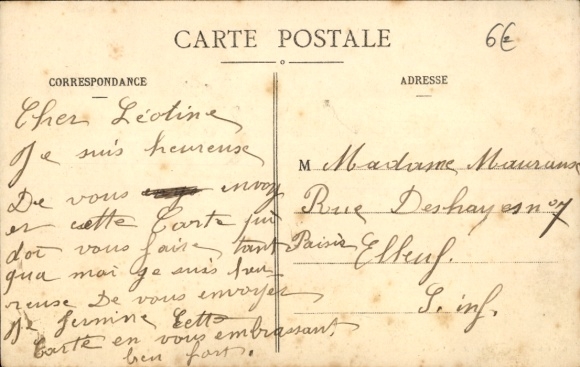 CARTE POSTALE
6€
CORRESPONDANCE
ADRESSE
Cher Léotine
Je suis heureuse
De vous envoy
er cette Carte qui
doi vous faire tant Plaisir
qua moi je suis heu-
reuse De vous envoyer
Je termine Cette
Carte en vous embrassant
bien fort.
M Madame Mauraux
Rue Deshayes n° 7
Elbeuf.
S. inf.